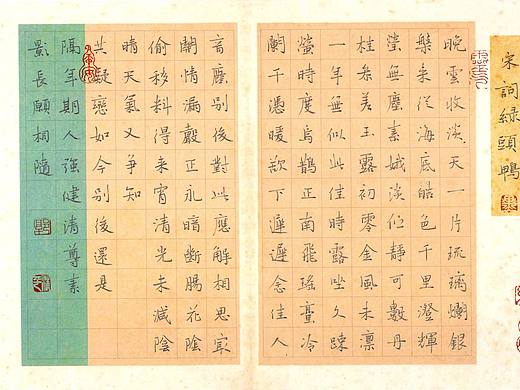 宋詞緑頭鴨
晚雲收淡天一片琉璃爛銀
盤来從海底皓色千里澄輝
瑩無塵素娥淡佇靜可數丹
桂叅差玉露初零金風未凛
一年無似此佳時露坐久疎
螢時度烏鵲正南飛瑤臺冷
闌干憑暖欲下遲遲念佳人
音塵别後對此應解相思冣
關情漏聲正永暗斷腸花陰
偷移料得来宵清光未減陰
晴天氣又爭知
共凝戀如今别後還是
隔年期人強健清尊素
影長願相隨